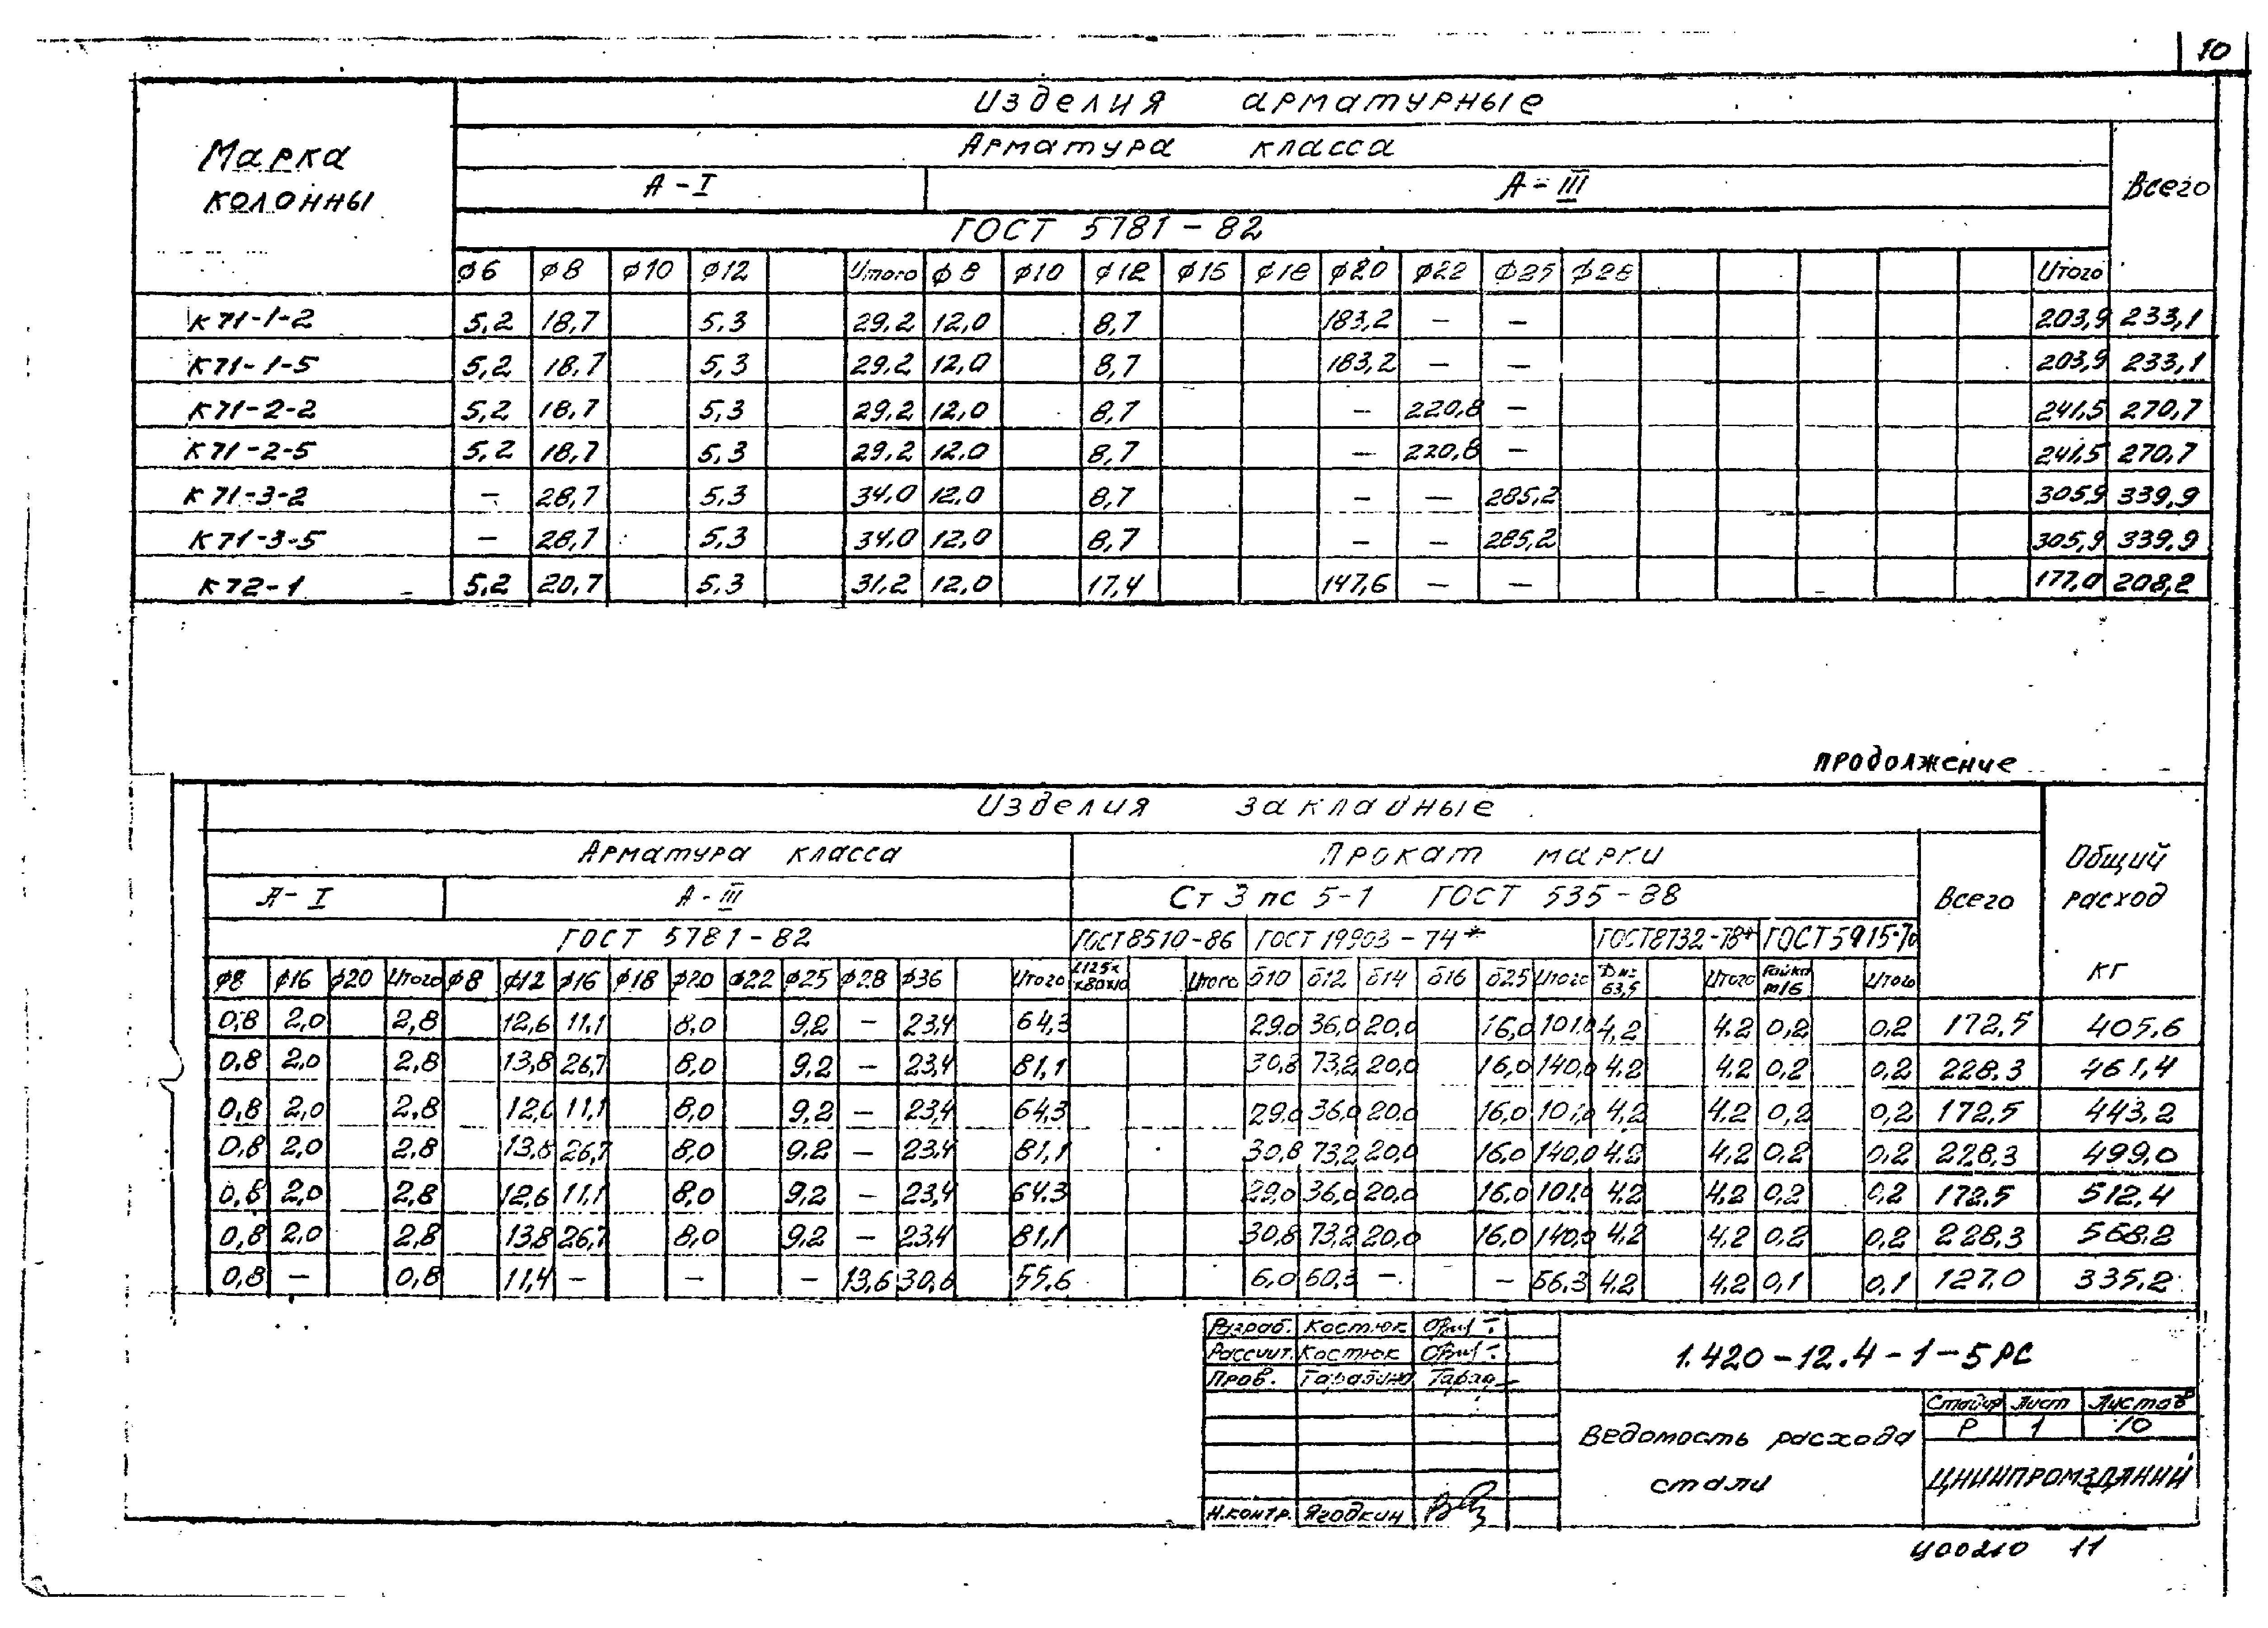 10
Изделия арматурные
Марка колонны
Арматура класса
Всего
А-I А-III
ГОСТ 5781-82
ф6 ф8 ф10 ф12 Итого ф8 ф10 ф12 ф16 ф18 ф20 ф22 ф25 ф28 Итого
К71-1-2 5,2 18,7 5,3 29,2 12,0 8,7 183,2 – – 203,9 233,1
К71-1-5 5,2 18,7 5,3 29,2 12,0 8,7 183,2 – – 203,9 233,1
К71-2-2 5,2 18,7 5,3 29,2 12,0 8,7 – 220,8 – 241,5 270,7
К71-2-5 5,2 18,7 5,3 29,2 12,0 8,7 – 220,8 – 241,5 270,7
К71-3-2 – 28,7 5,3 34,0 12,0 8,7 – – 285,2 305,9 339,9
К71-3-5 – 28,7 5,3 34,0 12,0 8,7 – – 285,2 305,9 339,9
К72-1 5,2 20,7 5,3 31,2 12,0 17,4 147,6 – – 177,0 208,2
продолжение
Изделия закладные
Арматура класса Прокат марки
Всего
Общий расход кг
А-I А-III Ст 3 пс 5-1 ГОСТ 535-88
ГОСТ 5781-82 ГОСТ 8510-86 ГОСТ 19903-74* ГОСТ 8732-78* ГОСТ 5915-70
ф8 ф16 ф20 Итого ф8 ф12 ф16 ф18 ф20 ф22 ф25 ф28 ф36 Итого L125х х80х10 Итого δ10 δ12 δ14 δ16 δ25 Итого Dн= 63,5 Итого Гайка m16 Итого
0,8 2,0 2,8 12,6 11,1 8,0 9,2 – 23,4 64,3 29,0 36,0 20,0 16,0 101,0 4,2 4,2 0,2 0,2 172,5 405,6
0,8 2,0 2,8 13,8 26,7 8,0 9,2 – 23,4 81,1 30,8 73,2 20,0 16,0 140,0 4,2 4,2 0,2 0,2 228,3 461,4
0,8 2,0 2,8 12,6 11,1 8,0 9,2 – 23,4 64,3 29,0 36,0 20,0 16,0 101,0 4,2 4,2 0,2 0,2 172,5 443,2
0,8 2,0 2,8 13,8 26,7 8,0 9,2 – 23,4 81,1 30,8 73,2 20,0 16,0 140,0 4,2 4,2 0,2 0,2 228,3 499,0
0,8 2,0 2,8 12,6 11,1 8,0 9,2 – 23,4 64,3 29,0 36,0 20,0 16,0 101,0 4,2 4,2 0,2 0,2 172,5 512,4
0,8 2,0 2,8 13,8 26,7 8,0 9,2 – 23,4 81,1 30,8 73,2 20,0 16,0 140,0 4,2 4,2 0,2 0,2 228,3 568,2
0,8 – 0,8 11,4 – – – 13,6 30,6 55,6 6,0 60,3 – – 66,3 4,2 4,2 0,1 0,1 127,0 335,2
Разраб. Костюк
Рассчит. Костюк
Пров.
1.420-12.4-1-5РС
Ведомость расхода
стали
Стадия Лист Листов
Р 1 10
ЦНИИПРОМЗДАНИЙ
Н.контр. Ягодкин
Ц00210 11